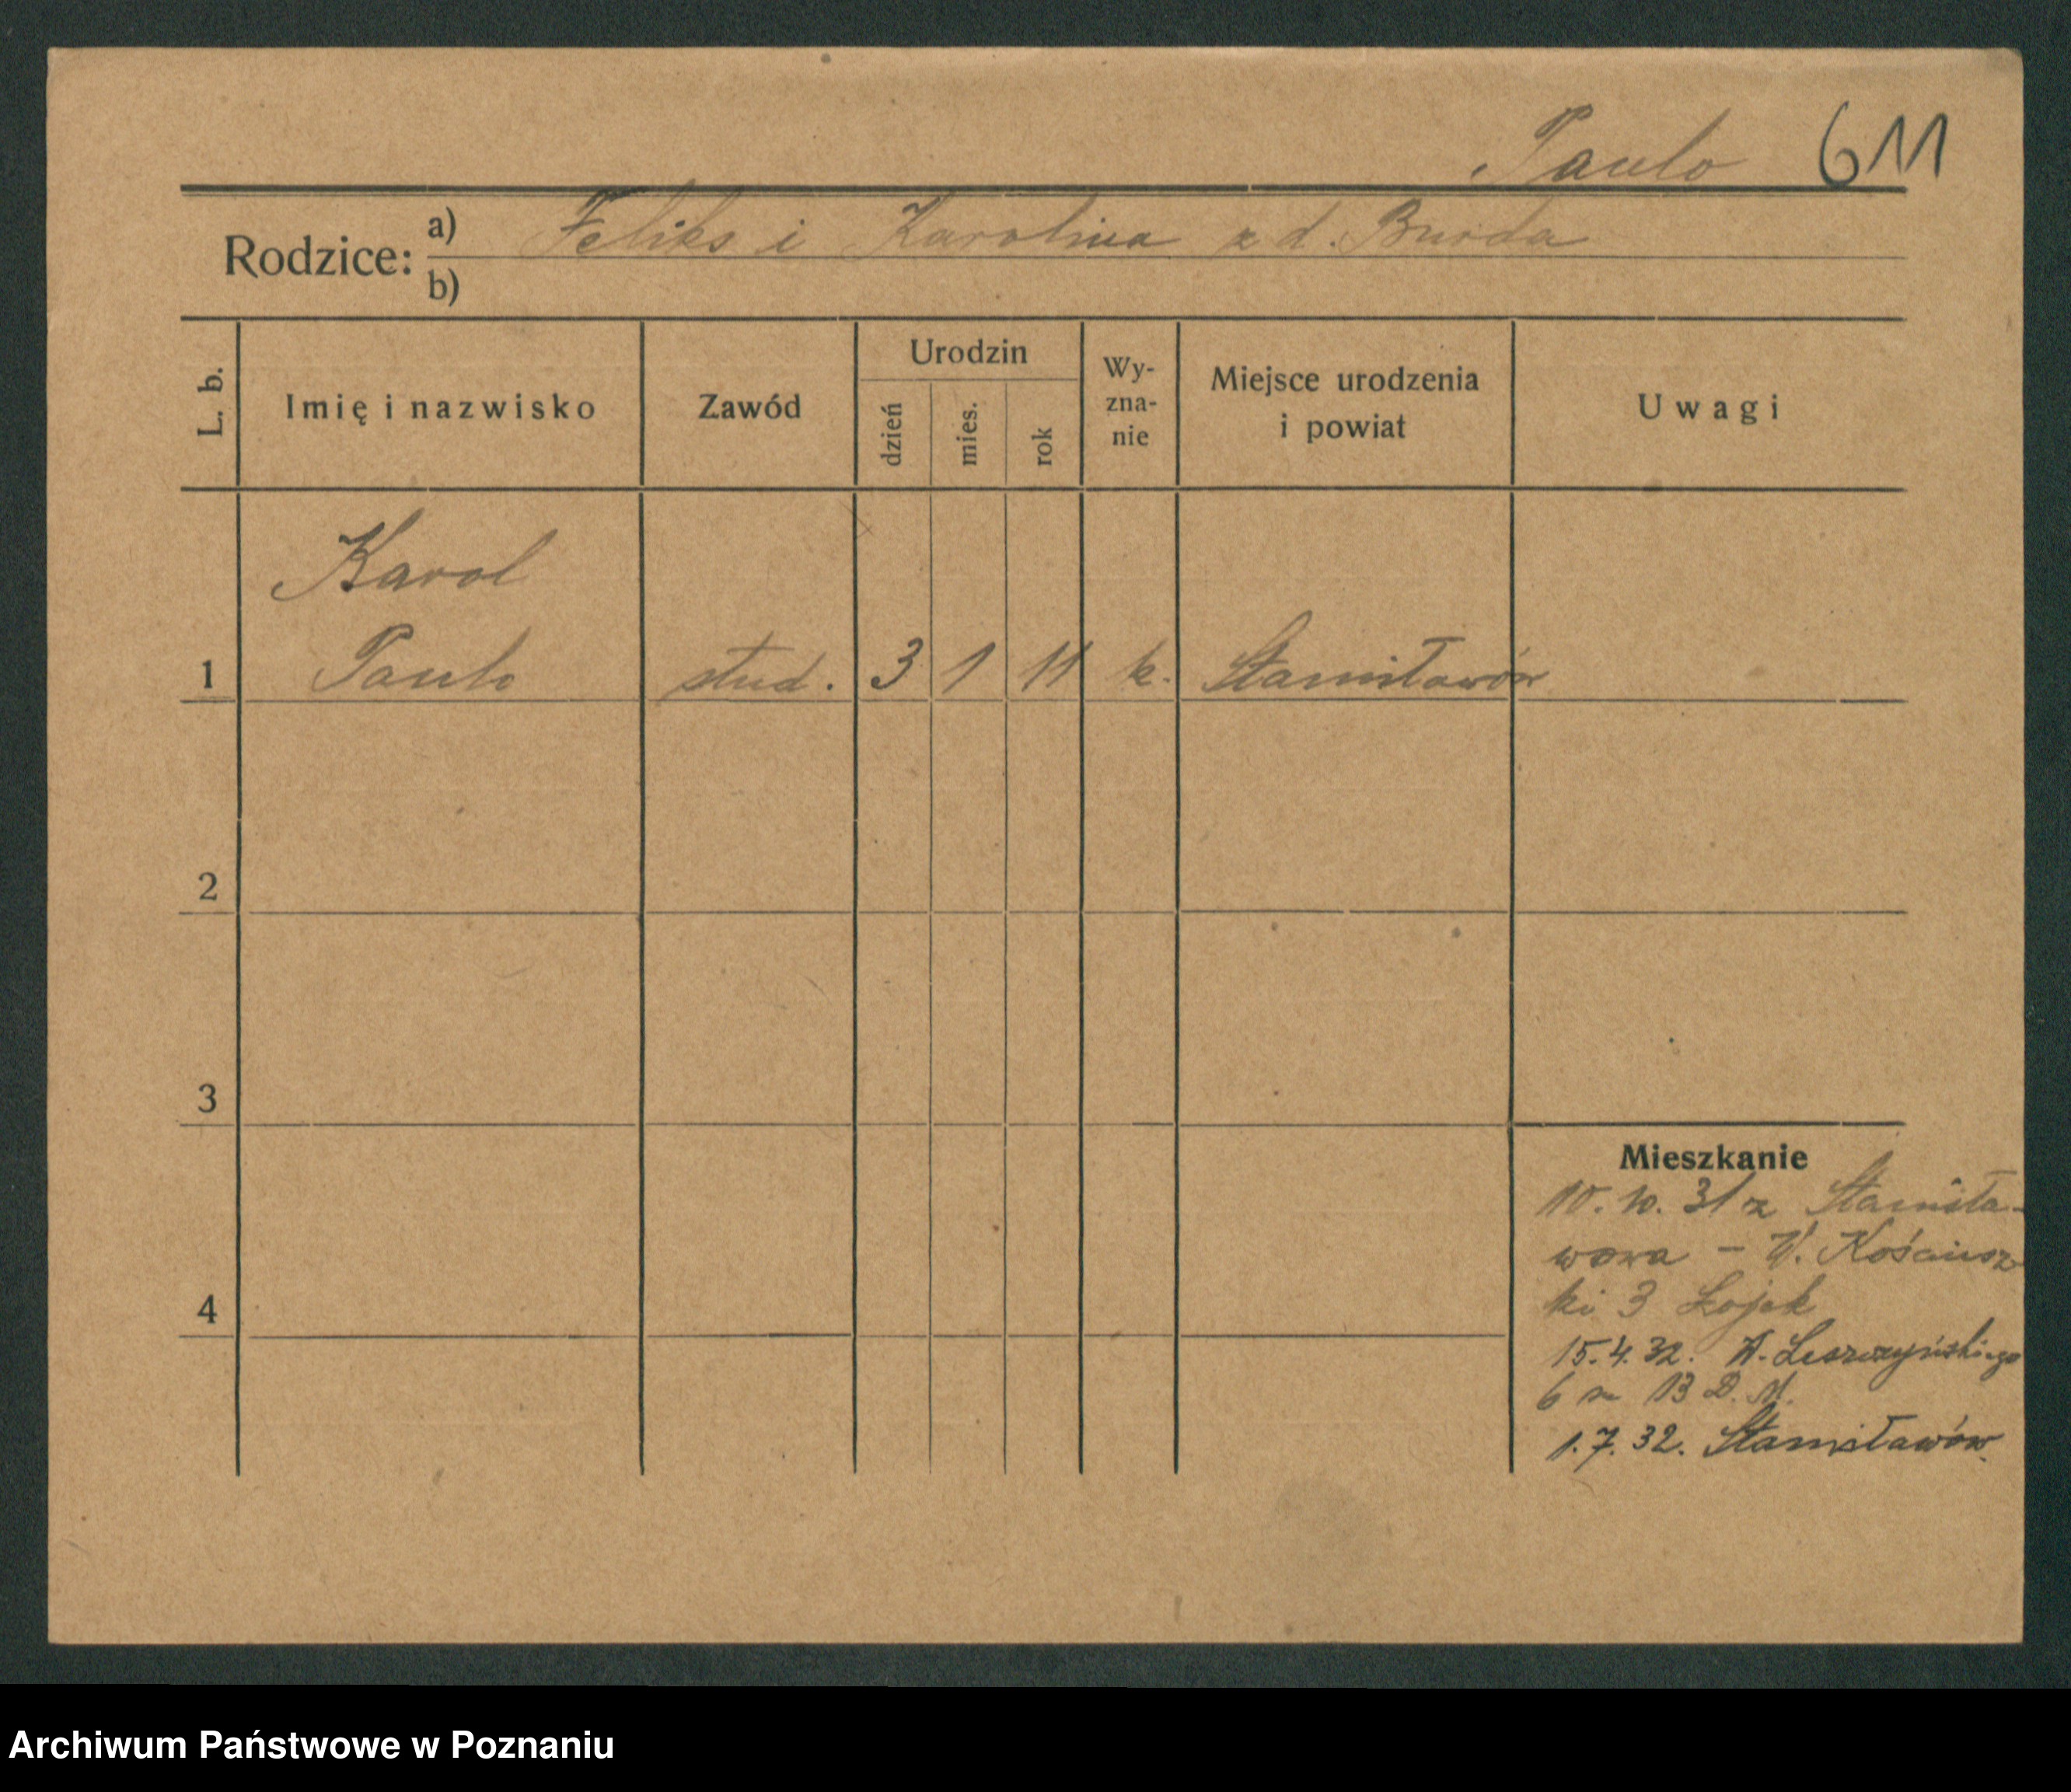 Paulo 611
Rodzice: a) Feliks i Karolina z d. Burda
b)
L. b. Imię i nazwisko Zawód Urodzin dzień mies. rok Wy-zna-nie Miejsce urodzenia i powiat Uwagi
Karol
1 Paulo stud. 3 1 11 k. Stanisławów
2
3
4
Mieszkanie
10. 10. 31 z Stanisła-
wowa - W. Kościusz
ki 3 Łojek
15. 4. 32. W. Leszczyńskiego
6 m 13 D. M.
1. 7. 32. Stanisławów.
Archiwum Państwowe w Poznaniu